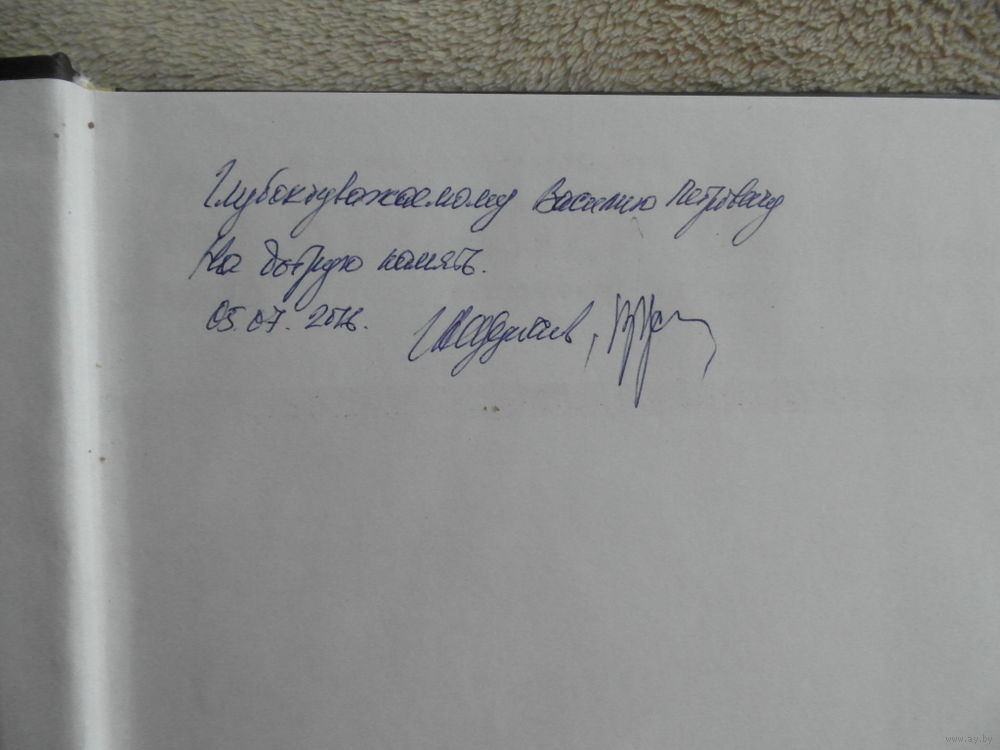 Глубокоуважаемому Василию Петровичу
На добрую память.
05.07.2016.
www.ay.by